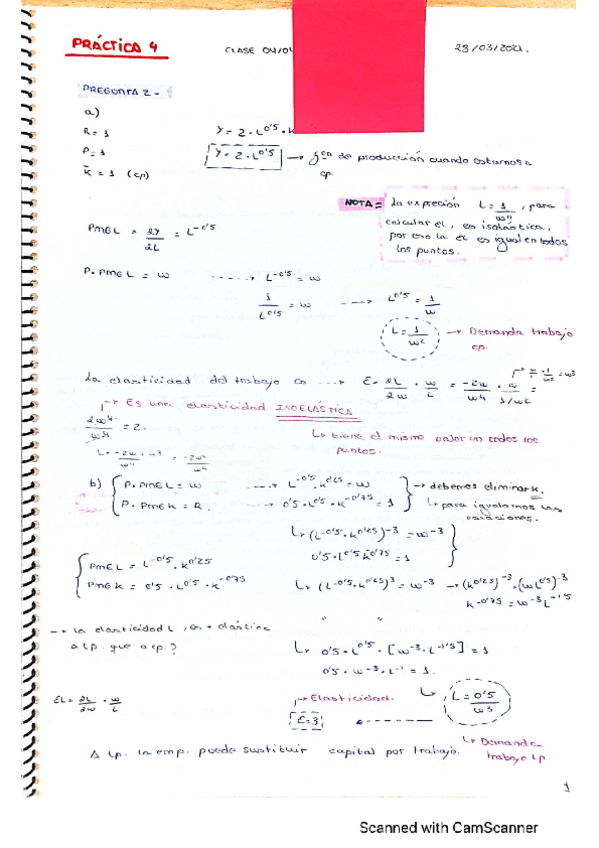 PRÁCTICA 4
CLASE 04/04
23/03/2021.
PREGUNTA 2-
a)
R = 1
P = 1
K̄ = 1 (cp)
Y = 2 · L^0'5 · K
Y = 2 · L^0'5 → de producción cuando estamos a
cp.
NOTA = La expresión L = 1/w^n , para
calcular el , es isolástica,
por eso la el es igual en todos
los puntos.
PMEL = 2Y/2L = L^-0'5
P · PMEL = w -----→ L^-0'5 = w
1/L^0'5 = w ---→ L^0'5 = 1/w
L = 1/w^2 → Demanda trabajo
cp.
La elasticidad del trabajo es ---→ E = 2L/2w · w/L = -2w/w^4 · w/1/w^2 =
→ Es una elasticidad ISOELÁSTICA
↳ tiene el mismo valor en todos los
puntos.
2w^4/w^4 = 2.
b) P · PMEL = w ----→ L^-0'5 · K^0'25 = w → debemos eliminar K.
P · PMEK = R. ----→ 0'5 · L^0'5 · K^-0'75 = 1 ↳ para igualamos las
ecuaciones.
↳ (L^-0'5 · K^0'25)^-3 = w^-3
0'5 · L^0'5 K^-0'75 = 1
PMEL = L^-0'5 · K^0'25
PMEK = 0'5 · L^0'5 · K^-0'75
↳ (L^-0'5 · K^0'25)^3 = w^-3 → (K^0'25)^-3 = (w L^0'5)^-3
K^-0'75 = w^-3 L^-1'5
" "
→ La elasticidad L , es + elástica
a Lp. que a cp.?
↳ 0'5 · L^0'5 · [w^-3 · L^-1'5] = 1
0'5 · w^-3 · L^-1 = 1.
EL = 2L/2w · w/L
→ Elasticidad.
E = 3
↳ L = 0'5/w^3
↳ Demanda
trabajo Lp
A Lp. la emp. puede sustituir capital por trabajo.
1
Scanned with CamScanner